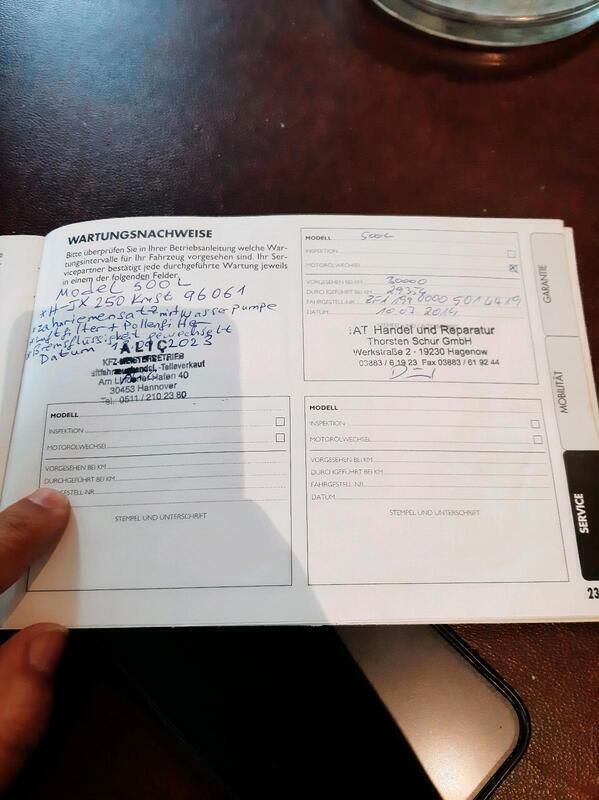 WARTUNGSNACHWEISE
Bitte überprüfen Sie in Ihrer Betriebsanleitung welche War-
tungsintervalle für Ihr Fahrzeug vorgesehen sind. Ihr Ser-
vicepartner bestätigt jede durchgeführte Wartung jeweils
in einem der folgenden Felder.
Model 500L
*H-JX 250 Kmst 96061
zahariemensatz mit wasserpumpe
Luftfilter + Pollenfilter
Bremsflüssigket gewechselt
Datum 2023
KFZ-MEISTERBETRIEB
-Teileverkauf
Am Lindener Hafen 40
30453 Hannover
Tel.: 0511 / 210 23 80
MODELL 500L
INSPEKTION
MOTORÖLWECHSEL
VORGESEHEN BEI KM 30000
DURCHGEFÜHRT BEI KM 29354
FAHRGESTELL-NR. ZFA 199 0000 5014419
DATUM 10.07.2014
AT Handel und Reparatur
Thorsten Schur GmbH
Werkstraße 2 - 19230 Hagenow
03883 / 6 19 23 Fax 03883 / 61 92 44
MODELL
INSPEKTION
MOTORÖLWECHSEL
VORGESEHEN BEI KM
DURCHGEFÜHRT BEI KM
GESTELL-NR.
STEMPEL UND UNTERSCHRIFT
MODELL
INSPEKTION
MOTORÖLWECHSEL
VORGESEHEN BEI KM
DURCHGEFÜHRT BEI KM
FAHRGESTELL-NR.
DATUM
STEMPEL UND UNTERSCHRIFT
GARANTIE
MOBILITÄT
SERVICE
23